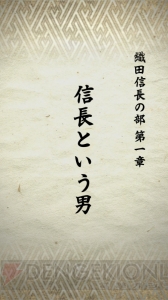 織田信長の部 第一章
信長という男
DENGEKIONLINE